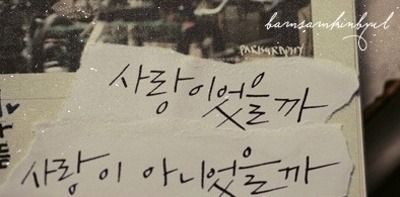 bamsamkinbyul
PARKGRAPHY
사랑이었을까
사랑이 아니었을까